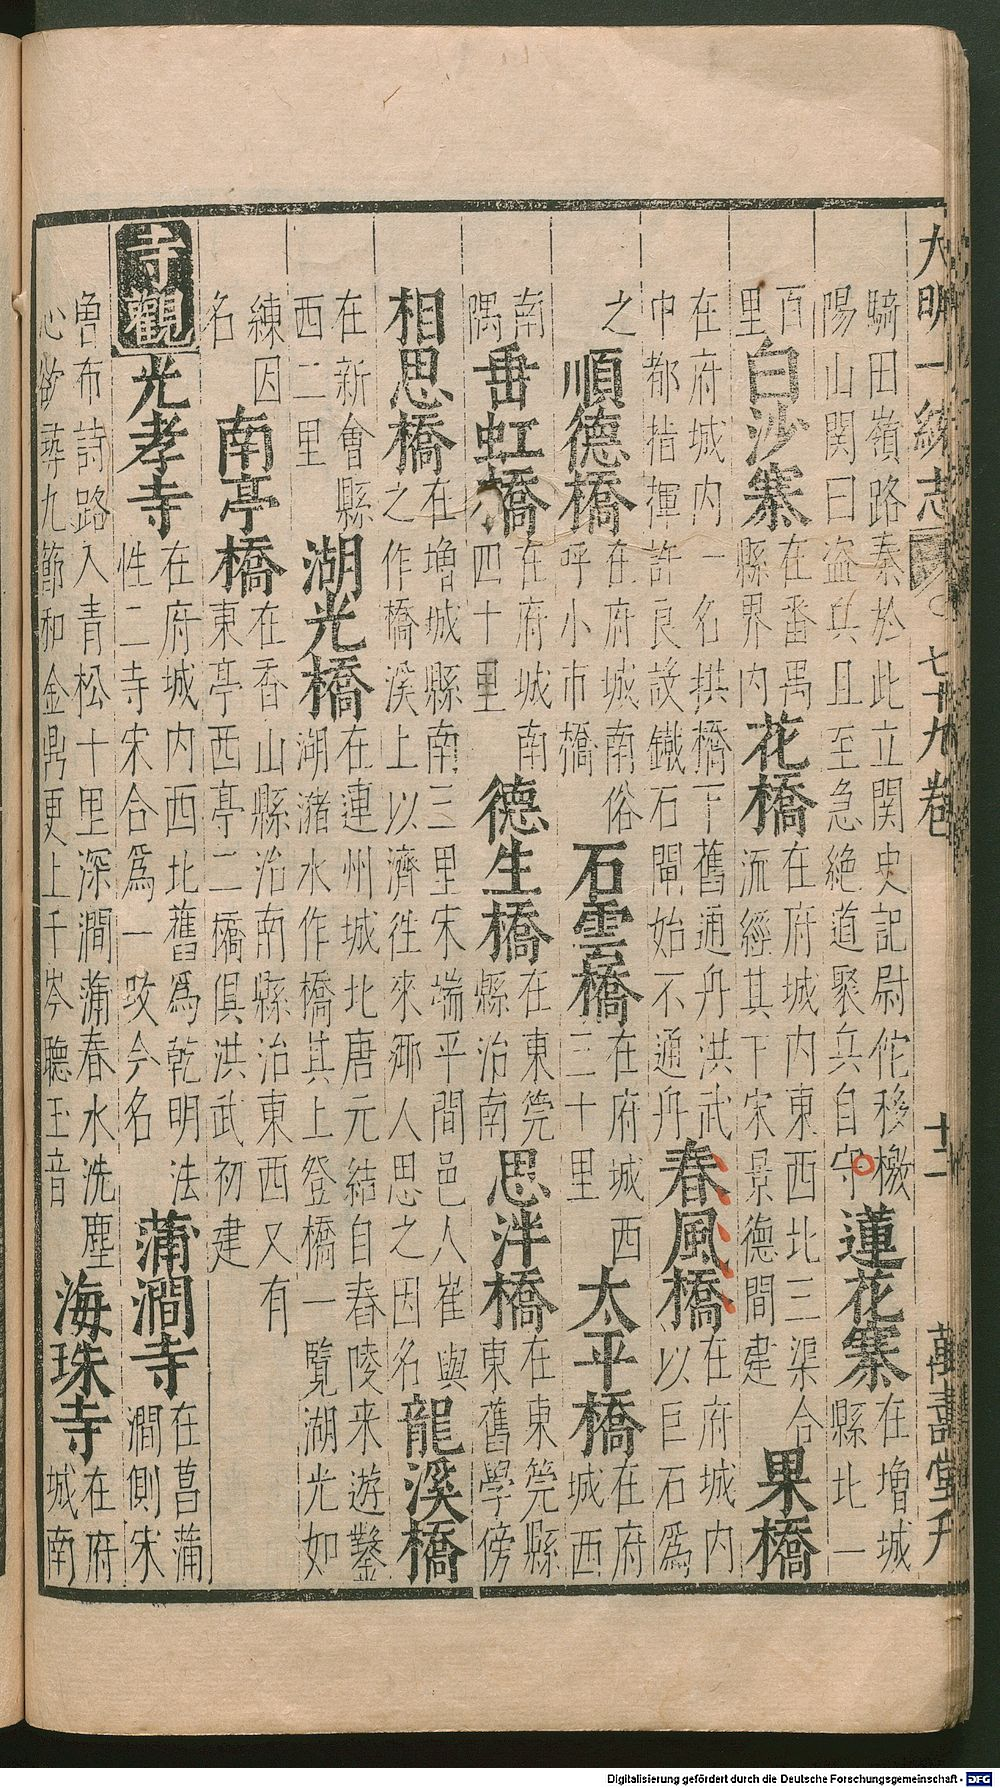 大明一統志 七十九卷 十二 萬壽堂刋
騎田嶺路秦於此立関史記尉佗移檄
陽山関曰盗兵且至急絶道聚兵自守 蓮花寨 在增城
縣北一
百
里 白沙寨 在番禺
縣界内 花橋 在府城内東西北三渠合
流經其下宋景德間建 果橋
在府城内一名拱橋下舊通舟洪武
中都指揮許良設鐵石閘始不通舟 春風橋 在府城内
以巨石爲
之 順德橋 在府城南俗
呼小市橋 石雲橋 在府城西
三十里 太平橋 在府
城西
南
隅 垂虹橋 在府城南
四十里 德生橋 在東筦
縣治南 思泮橋 在東筦縣
東舊學傍
相思橋 在增城縣南三里宋端平間邑人崔與
之作橋溪上以濟往來郷人思之因名 龍溪橋
在新會縣
西二里 湖光橋 在連州城北唐元結自舂陵来遊鑿
湖瀦水作橋其上登橋一覽湖光如
練因
名 南亭橋 在香山縣治南縣治東西又有
東亭西亭二橋俱洪武初建
寺觀 光孝寺 在府城内西北舊爲乾明法
性二寺宋合爲一改今名 蒲澗寺 在菖蒲
澗側宋
魯布詩路入青松十里深澗蒲春水洗塵
心欲尋九節和金鼎更上千岑聽玉音 海珠寺 在府
城南
Digitalisierung gefördert durch die Deutsche Forschungsgemeinschaft - DFG